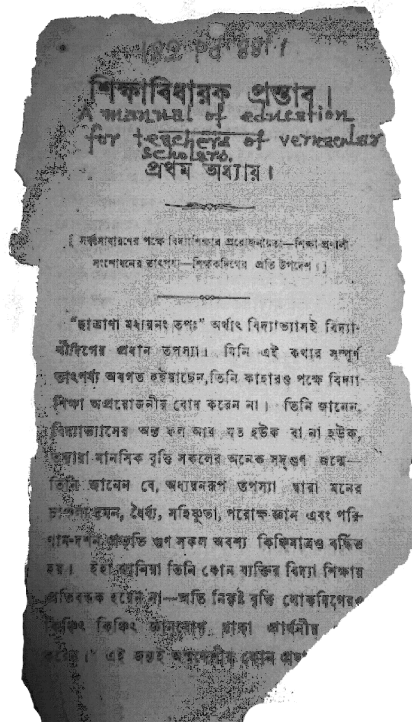 শিক্ষাবিধায়ক প্রস্তাব।
A manual of education
for teachers of vernacular
scholars.
প্রথম অধ্যায়।
[ সর্ব্বসাধারণের পক্ষে বিদ্যাশিক্ষার প্রয়োজনীয়তা—শিক্ষা প্রণালী
সংশোধনের তাৎপর্য্য—শিক্ষকদিগের প্রতি উপদেশ। ]
“ছাত্রাণা মধ্যয়নং তপঃ” অর্থাৎ বিদ্যাভ্যাসই বিদ্যা-
র্থীদিগের প্রধান তপস্যা। যিনি এই কথার সম্পূর্ণ
তাৎপর্য্য অবগত হইয়াছেন, তিনি কাহারও পক্ষে বিদ্যা-
শিক্ষা অপ্রয়োজনীয় বোধ করেন না। তিনি জানেন,
বিদ্যাভ্যাসের অন্ত ফল আর যত হউক বা না হউক,
মানসিক বৃত্তি সকলের অনেক সদ্গুণ জন্মে—
তিনি জানেন যে, অধ্যয়নরূপ তপস্যা দ্বারা মনের
দমন, ধৈর্য্য, সহিষ্ণুতা, পরোক্ষ জ্ঞান এবং পরি-
ণাম-দর্শন প্রভৃতি গুণ সকল অবশ্য কিঞ্চিন্মাত্রও বর্দ্ধিত
হয়। ইহা জানিয়া তিনি কোন ব্যক্তির বিদ্যা শিক্ষায়
প্রতিবন্ধক হয়েন না—অতি নিকৃষ্ট বৃত্তি লোকদিগেরও
কিঞ্চিৎ কিঞ্চিৎ প্রার্থনীয়
করেন।” এই জন্যই কোন